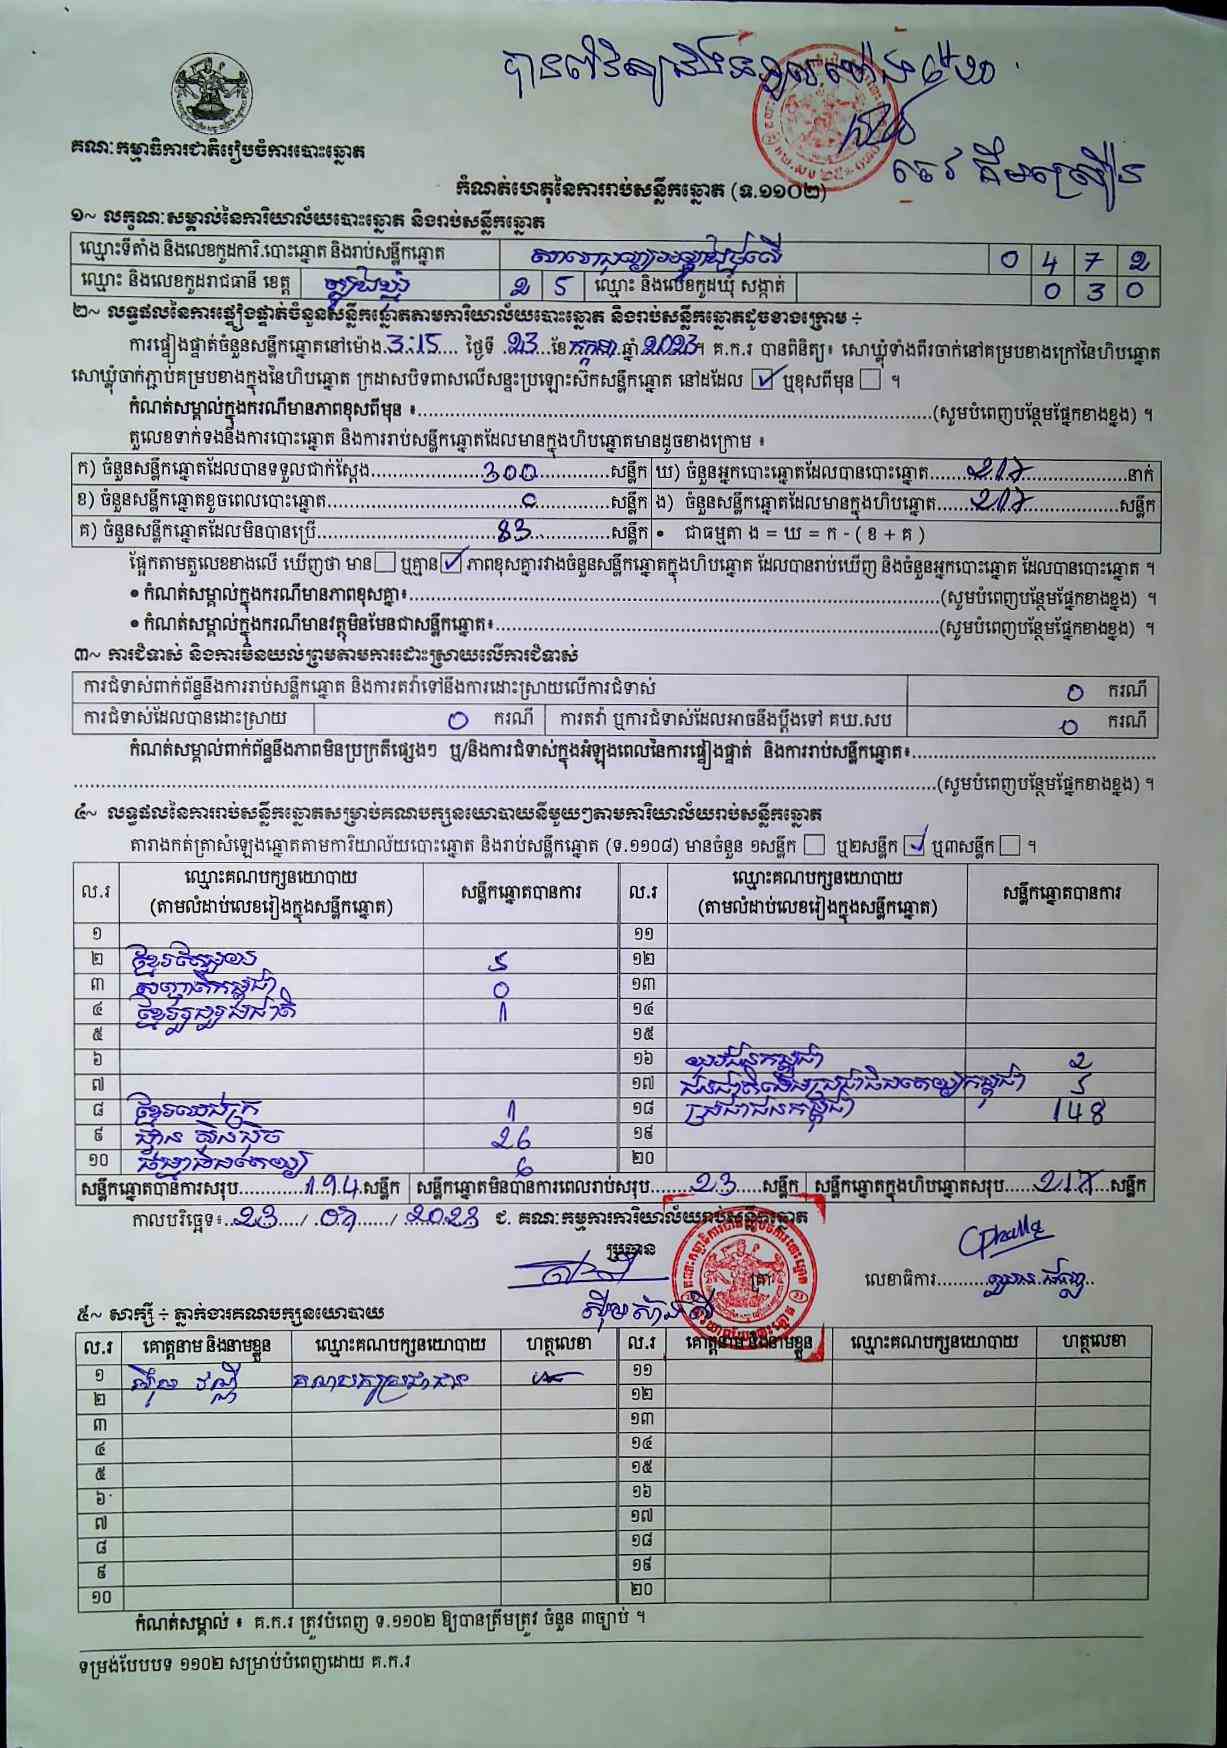 គណៈកម្មាធិការជាតិរៀបចំការបោះឆ្នោត
កំណត់ហេតុនៃការរាប់សន្លឹកឆ្នោត (ទ.១១០២)
១~ លក្ខណៈសម្គាល់នៃការិយាល័យបោះឆ្នោត និងរាប់សន្លឹកឆ្នោត
ឈ្មោះទីតាំង និងលេខកូដការិ.បោះឆ្នោត និងរាប់សន្លឹកឆ្នោត 0 4 7 2
ឈ្មោះ និងលេខកូដរាជធានី ខេត្ត ត្បូងឃ្មុំ 2 5 ឈ្មោះ និងលេខកូដឃុំ សង្កាត់ 0 3 0
២~ លទ្ធផលនៃការផ្ទៀងផ្ទាត់ចំនួនសន្លឹកឆ្នោតតាមការិយាល័យបោះឆ្នោត និងរាប់សន្លឹកឆ្នោតដូចខាងក្រោម ÷
ការផ្ទៀងផ្ទាត់ចំនួនសន្លឹកឆ្នោតនៅម៉ោង.3:15.... ថ្ងៃទី .23...ខែកក្កដា.ឆ្នាំ.2023។ គ.ក.រ បានពិនិត្យ៖ សោឃ្លុំទាំងពីរចាក់នៅគម្របខាងក្រៅនៃហិបឆ្នោត
សោឃ្លុំចាក់ភ្ជាប់គម្របខាងក្នុងនៃហិបឆ្នោត ក្រដាសបិទពាសលើសន្ទះប្រឡោះស៊កសន្លឹកឆ្នោត នៅដដែល ☑ ឬខុសពីមុន ☐ ។
កំណត់សម្គាល់ក្នុងករណីមានភាពខុសពីមុន ៖..........(សូមបំពេញបន្ថែមផ្នែកខាងខ្នង) ។
តួលេខទាក់ទងនឹងការបោះឆ្នោត និងការរាប់សន្លឹកឆ្នោតដែលមានក្នុងហិបឆ្នោតមានដូចខាងក្រោម ៖
ក) ចំនួនសន្លឹកឆ្នោតដែលបានទទួលជាក់ស្តែង..........300..........សន្លឹក ឃ) ចំនួនអ្នកបោះឆ្នោតដែលបានបោះឆ្នោត.......217..........នាក់
ខ) ចំនួនសន្លឹកឆ្នោតខូចពេលបោះឆ្នោត..........0..........សន្លឹក ង) ចំនួនសន្លឹកឆ្នោតដែលមានក្នុងហិបឆ្នោត.......217..........សន្លឹក
គ) ចំនួនសន្លឹកឆ្នោតដែលមិនបានប្រើ..........83..........សន្លឹក • ជាធម្មតា ង = ឃ = ក - ( ខ + គ )
ផ្អែកតាមតួលេខខាងលើ ឃើញថា មាន ☐ ឬគ្មាន ☑ ភាពខុសគ្នារវាងចំនួនសន្លឹកឆ្នោតក្នុងហិបឆ្នោត ដែលបានរាប់ឃើញ និងចំនួនអ្នកបោះឆ្នោត ដែលបានបោះឆ្នោត ។
• កំណត់សម្គាល់ក្នុងករណីមានភាពខុសគ្នា៖..........(សូមបំពេញបន្ថែមផ្នែកខាងខ្នង) ។
• កំណត់សម្គាល់ក្នុងករណីមានវត្ថុមិនមែនជាសន្លឹកឆ្នោត៖..........(សូមបំពេញបន្ថែមផ្នែកខាងខ្នង) ។
៣~ ការជំទាស់ និងការមិនយល់ព្រមតាមការដោះស្រាយលើការជំទាស់
ការជំទាស់ពាក់ព័ន្ធនឹងការរាប់សន្លឹកឆ្នោត និងការតវ៉ាទៅនឹងការដោះស្រាយលើការជំទាស់ 0 ករណី
ការជំទាស់ដែលបានដោះស្រាយ 0 ករណី ការតវ៉ា ឬការជំទាស់ដែលអាចនឹងប្តឹងទៅ គឃ.សប 0 ករណី
កំណត់សម្គាល់ពាក់ព័ន្ធនឹងភាពមិនប្រក្រតីផ្សេងៗ ឬ/និងការជំទាស់ក្នុងអំឡុងពេលនៃការផ្ទៀងផ្ទាត់ និងការរាប់សន្លឹកឆ្នោត៖..........
..........(សូមបំពេញបន្ថែមផ្នែកខាងខ្នង) ។
៤~ លទ្ធផលនៃការរាប់សន្លឹកឆ្នោតសម្រាប់គណបក្សនយោបាយនីមួយៗតាមការិយាល័យរាប់សន្លឹកឆ្នោត
តារាងកត់ត្រាសំឡេងឆ្នោតតាមការិយាល័យបោះឆ្នោត និងរាប់សន្លឹកឆ្នោត (ទ.១១០៨) មានចំនួន ១សន្លឹក ☐ ឬ២សន្លឹក ☑ ឬ៣សន្លឹក ☐ ។
ល.រ ឈ្មោះគណបក្សនយោបាយ (តាមលំដាប់លេខរៀងក្នុងសន្លឹកឆ្នោត) សន្លឹកឆ្នោតបានការ ល.រ ឈ្មោះគណបក្សនយោបាយ (តាមលំដាប់លេខរៀងក្នុងសន្លឹកឆ្នោត) សន្លឹកឆ្នោតបានការ
១ ១១
២ 5 ១២
៣ 0 ១៣
៤ ខ្មែររួបរួមជាតិ 1 ១៤
៥ ១៥
៦ ១៦ យុវជនកម្ពុជា 2
៧ ១៧ 5
៨ 1 ១៨ ប្រជាជនកម្ពុជា 148
៩ ហ្វ៊ុនស៊ិនប៉ិច 26 ១៩
១០ 6 ២០
សន្លឹកឆ្នោតបានការសរុប..........194.សន្លឹក សន្លឹកឆ្នោតមិនបានការពេលរាប់សរុប.......23.....សន្លឹក សន្លឹកឆ្នោតក្នុងហិបឆ្នោតសរុប......217...សន្លឹក
កាលបរិច្ឆេទ៖..23..../.07....../..2023 ជ. គណៈកម្មការការិយាល័យរាប់សន្លឹកឆ្នោត
ប្រធាន
លេខាធិការ..........
៥~ សាក្សី ÷ ភ្នាក់ងារគណបក្សនយោបាយ
ល.រ គោត្តនាម និងនាមខ្លួន ឈ្មោះគណបក្សនយោបាយ ហត្ថលេខា ល.រ គោត្តនាម និងនាមខ្លួន ឈ្មោះគណបក្សនយោបាយ ហត្ថលេខា
១ គណបក្សប្រជាជន ១១
២ ១២
៣ ១៣
៤ ១៤
៥ ១៥
៦ ១៦
៧ ១៧
៨ ១៨
៩ ១៩
១០ ២០
កំណត់សម្គាល់ ៖ គ.ក.រ ត្រូវបំពេញ ទ.១១០២ ឱ្យបានត្រឹមត្រូវ ចំនួន ៣ច្បាប់ ។
ទម្រង់បែបបទ ១១០២ សម្រាប់បំពេញដោយ គ.ក.រ